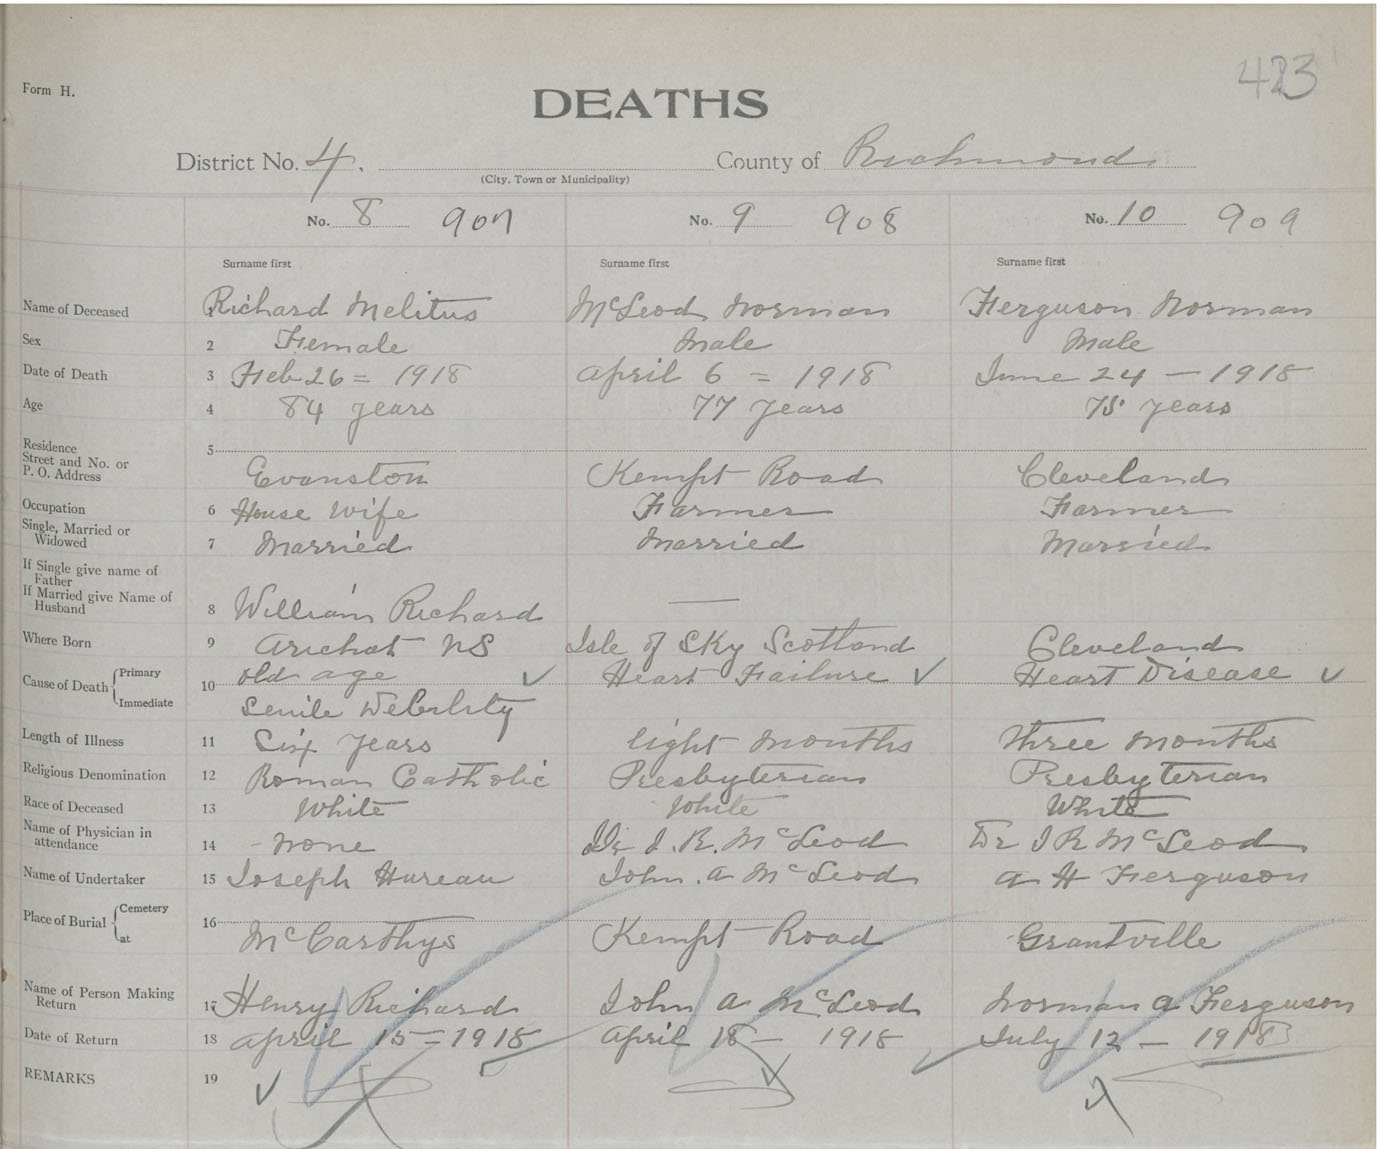 423
Form H.
DEATHS
District No. 4. County of Richmond
(City, Town or Municipality)
No. 8 907 No. 9 908 No. 10 909
Surname first Surname first Surname first
Name of Deceased Richard Melitus McLeod Norman Ferguson Norman
Sex 2 Female Male Male
Date of Death 3 Feb 26 = 1918 April 6 = 1918 June 24 — 1918
Age 4 84 years 77 years 75 years
Residence
Street and No. or 5
P. O. Address Evanston Kempt Road Cleveland
Occupation 6 House Wife Farmer Farmer
Single, Married or
Widowed 7 Married Married Married
If Single give name of
Father
If Married give Name of
Husband 8 William Richard —
Where Born 9 Arichat NS Isle of Sky Scotland Cleveland
Cause of Death Primary old age ✓ Heart Failure ✓ Heart Disease ✓
10
Immediate Senile Debility
Length of Illness 11 Six years Eight months Three months
Religious Denomination 12 Roman Catholic Presbyterian Presbyterian
Race of Deceased 13 White White White
Name of Physician in
attendance 14 - none Dr I. R. McLeod Dr I R McLeod
Name of Undertaker 15 Joseph Hureau John. A McLeod A H Ferguson
Place of Burial Cemetery 16
at McCarthys Kempt Road Grantville
Name of Person Making
Return 17 Henry Richard John A McLeod Norman A Ferguson
Date of Return 18 April 15 = 1918 April 18 — 1918 July 12 — 1918
REMARKS 19